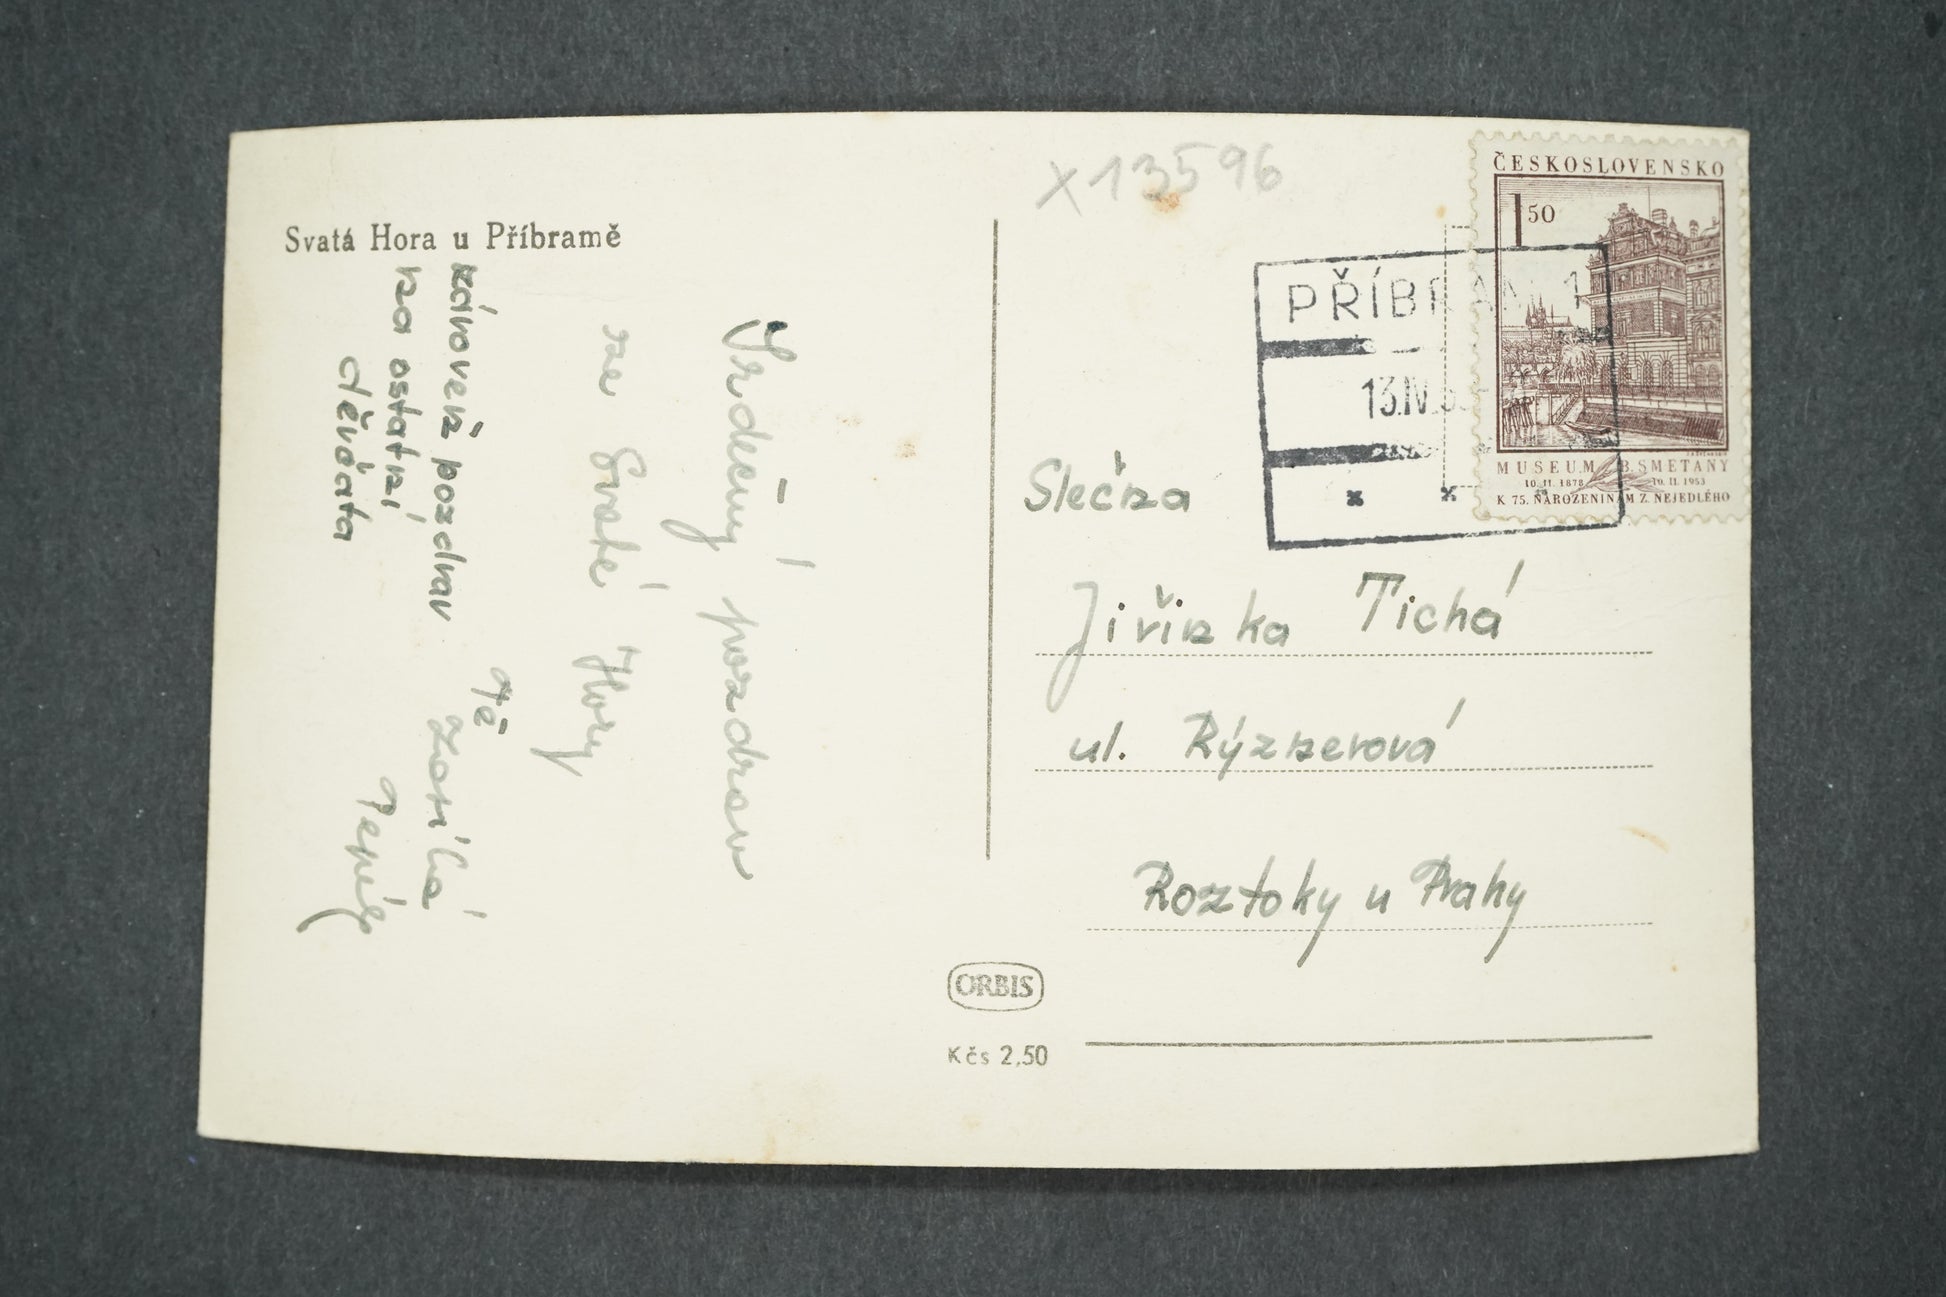 Svatá Hora u Příbramě
Srdečný pozdrav
ze Svaté Hory
Tě
zároveň pozdrav
za ostatní
děvčata
x13596
ČESKOSLOVENSKO
1 50
MUSEUM B. SMETANY
10. II. 1878 10. II. 1953
K 75. NAROZENINÁM Z. NEJEDLÉHO
PŘÍBRAM 1
13.IV.
Slečna
Jiřinka Tichá
ul. Rýznerová
Roztoky u Prahy
ORBIS
Kčs 2,50